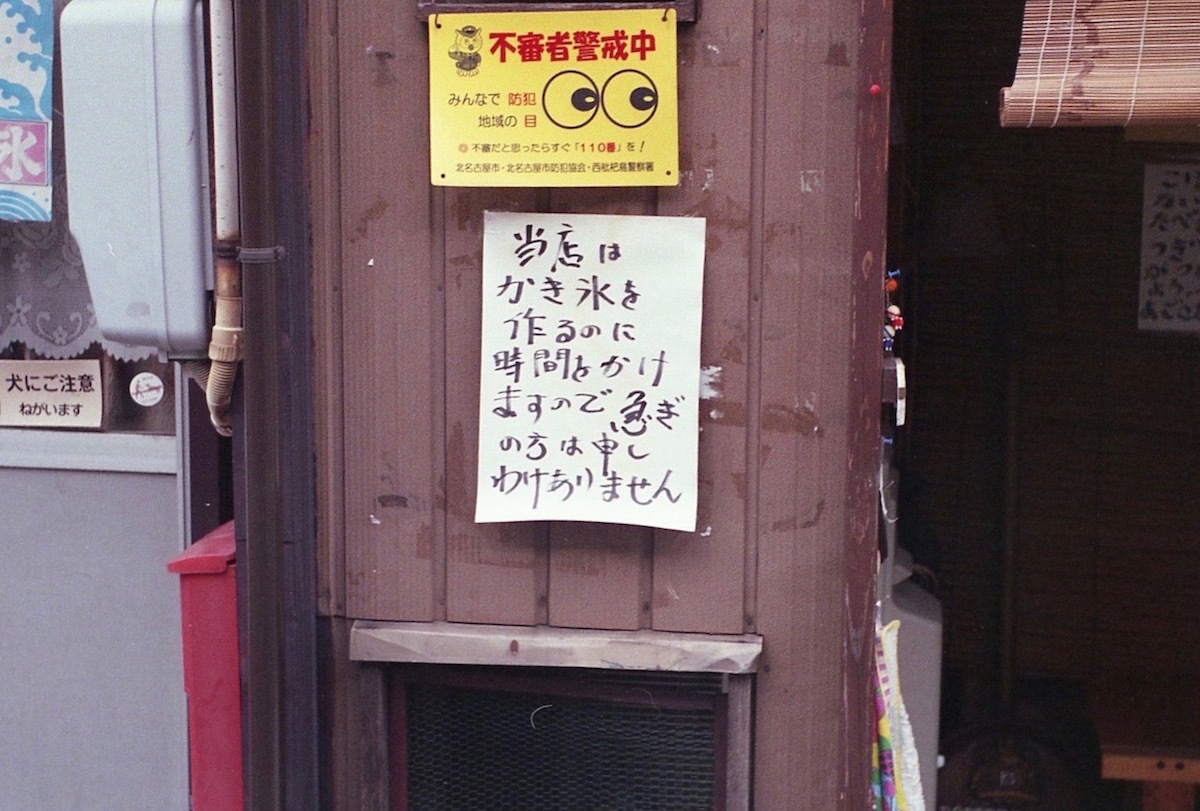 不審者警戒中
みんなで 防犯
地域の 目
不審だと思ったらすぐ「110番」を!
北名古屋市・北名古屋市防犯協会・西枇杷島警察署
当店は
かき氷を
作るのに
時間をかけ
ますので急ぎ
の方は申し
わけありません
氷
犬にご注意
ねがいます